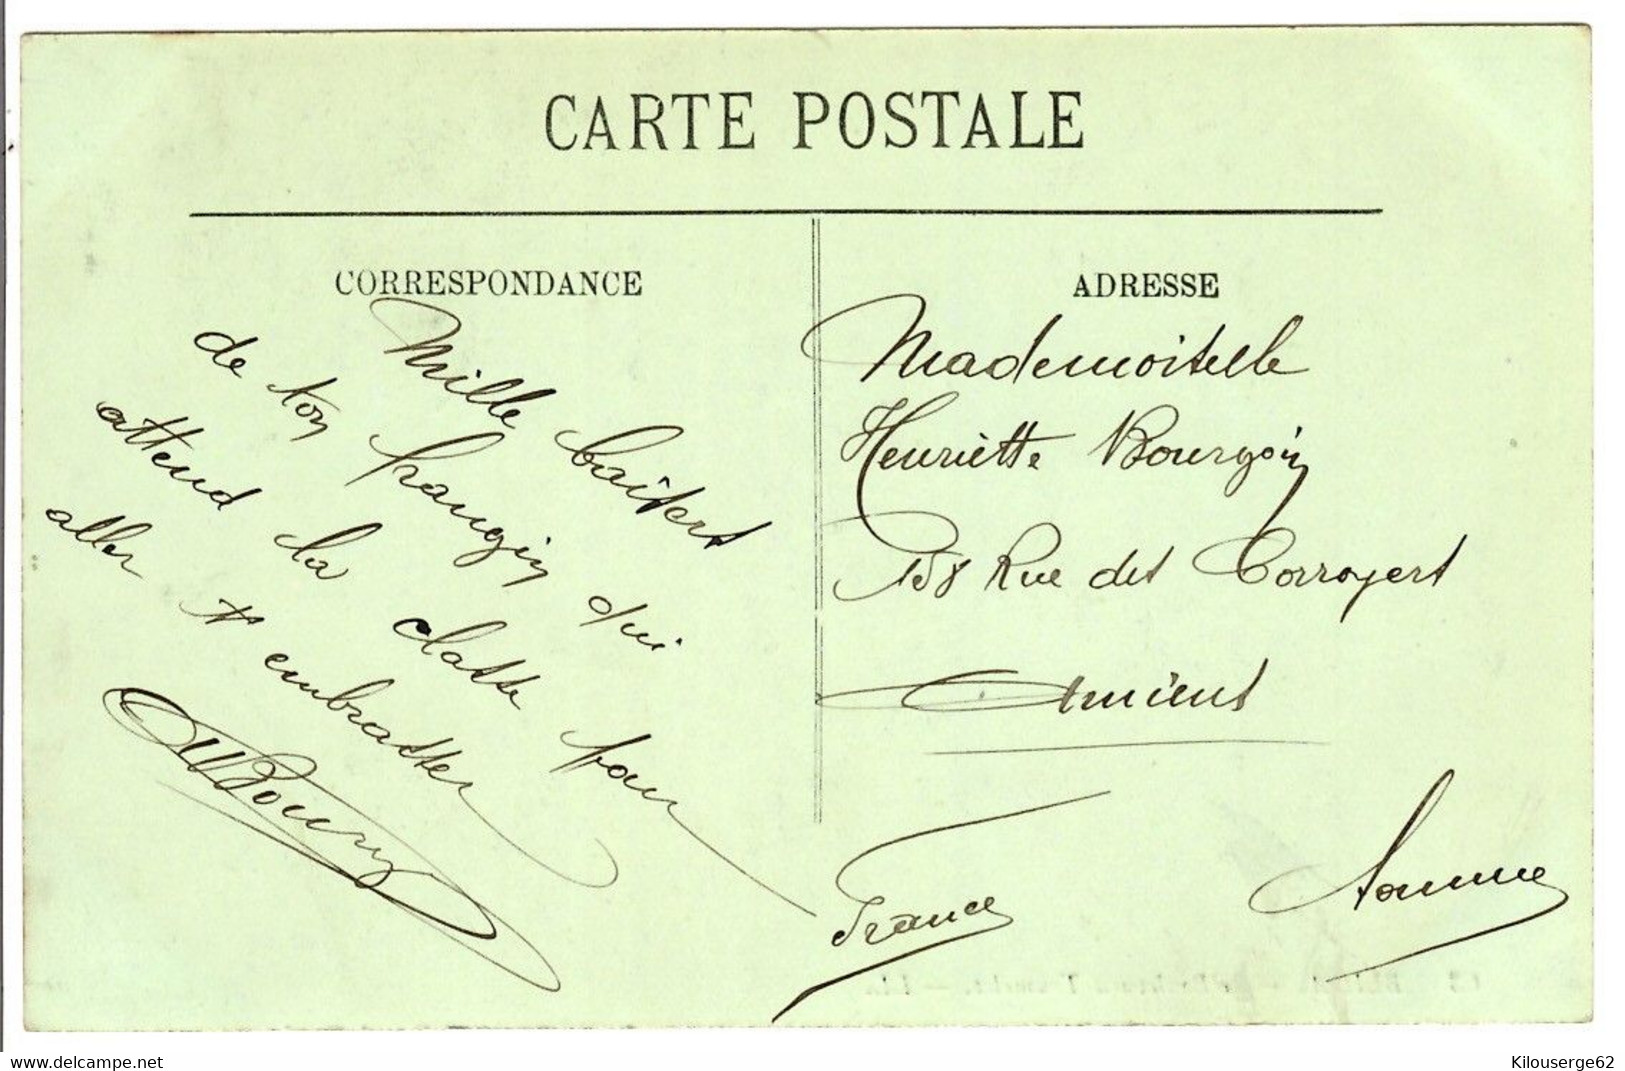 CARTE POSTALE
CORRESPONDANCE
Mille baisers
de ton frangin qui
attend la classe pour
aller t embrasser
ADRESSE
Mademoiselle
Henriette Bourgoin
158 Rue des Corroyers
Amiens
Somme
France
www.delcampe.net
Kilouserge62